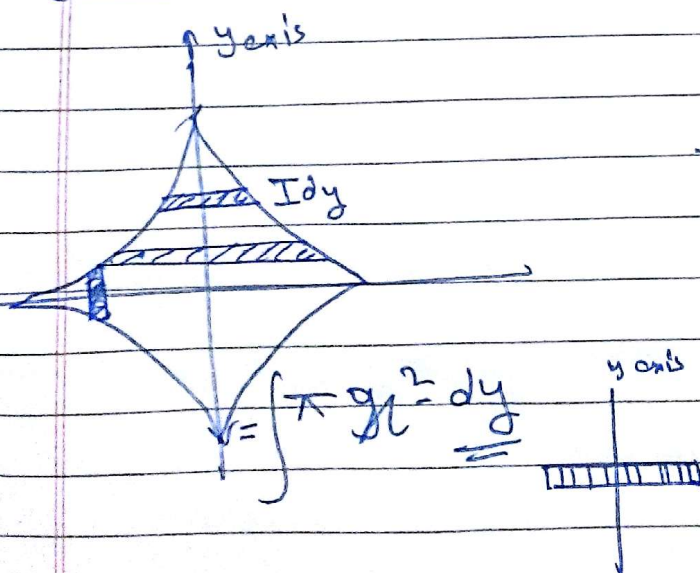 y axis
I dy
= ∫ π x² dy
y axis